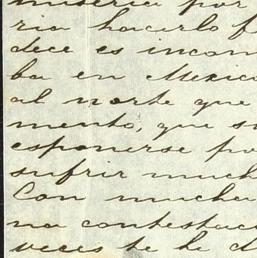 miseria por
ria hacerlo f
dece es incom
ba en Mexico
al norte que
mento, que s
esponerse po
sufrir much
Con mucha
na contestac
veces te le d